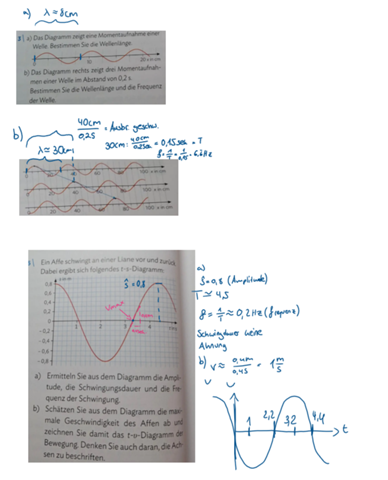 a) λ ≈ 8cm
3 a) Das Diagramm zeigt eine Momentaufnahme einer
Welle. Bestimmen Sie die Wellenlänge.
10
20 x in cm
b) Das Diagramm rechts zeigt drei Momentaufnah-
men einer Welle im Abstand von 0,2 s.
Bestimmen Sie die Wellenlänge und die Frequenz
der Welle.
b)
40cm
= Ausbr. geschw.
λ ≈ 30cm
20 40 60 80 100 x in cm
20 40 60 80 100 x in cm
20 40 60 80 100 x in cm
Ein Affe schwingt an einer Liane vor und zurück.
Dabei ergibt sich folgendes t-s-Diagramm:
ŝ = 0,8
0,8
0,6
0,4
0,2
0
-0,2
-0,4
-0,6
-0,8
a) Ermitteln Sie aus dem Diagramm die Ampli-
tude, die Schwingungsdauer und die Fre-
quenz der Schwingung.
b) Schätzen Sie aus dem Diagramm die maxi-
male Geschwindigkeit des Affen ab und
zeichnen Sie damit das t-v-Diagramm der
Bewegung. Denken Sie auch daran, die Ach-
sen zu beschriften.
a)
ŝ = 0,8 (Amplitude)
T ≃ 4,5
f = 1/T ≈ 0,2 Hz (frequenz)
Schwingdauer keine
Ahnung
b) v ≈ 0,4m/0,4s = 1 m/s
1 2,2 3,2 4,4 t